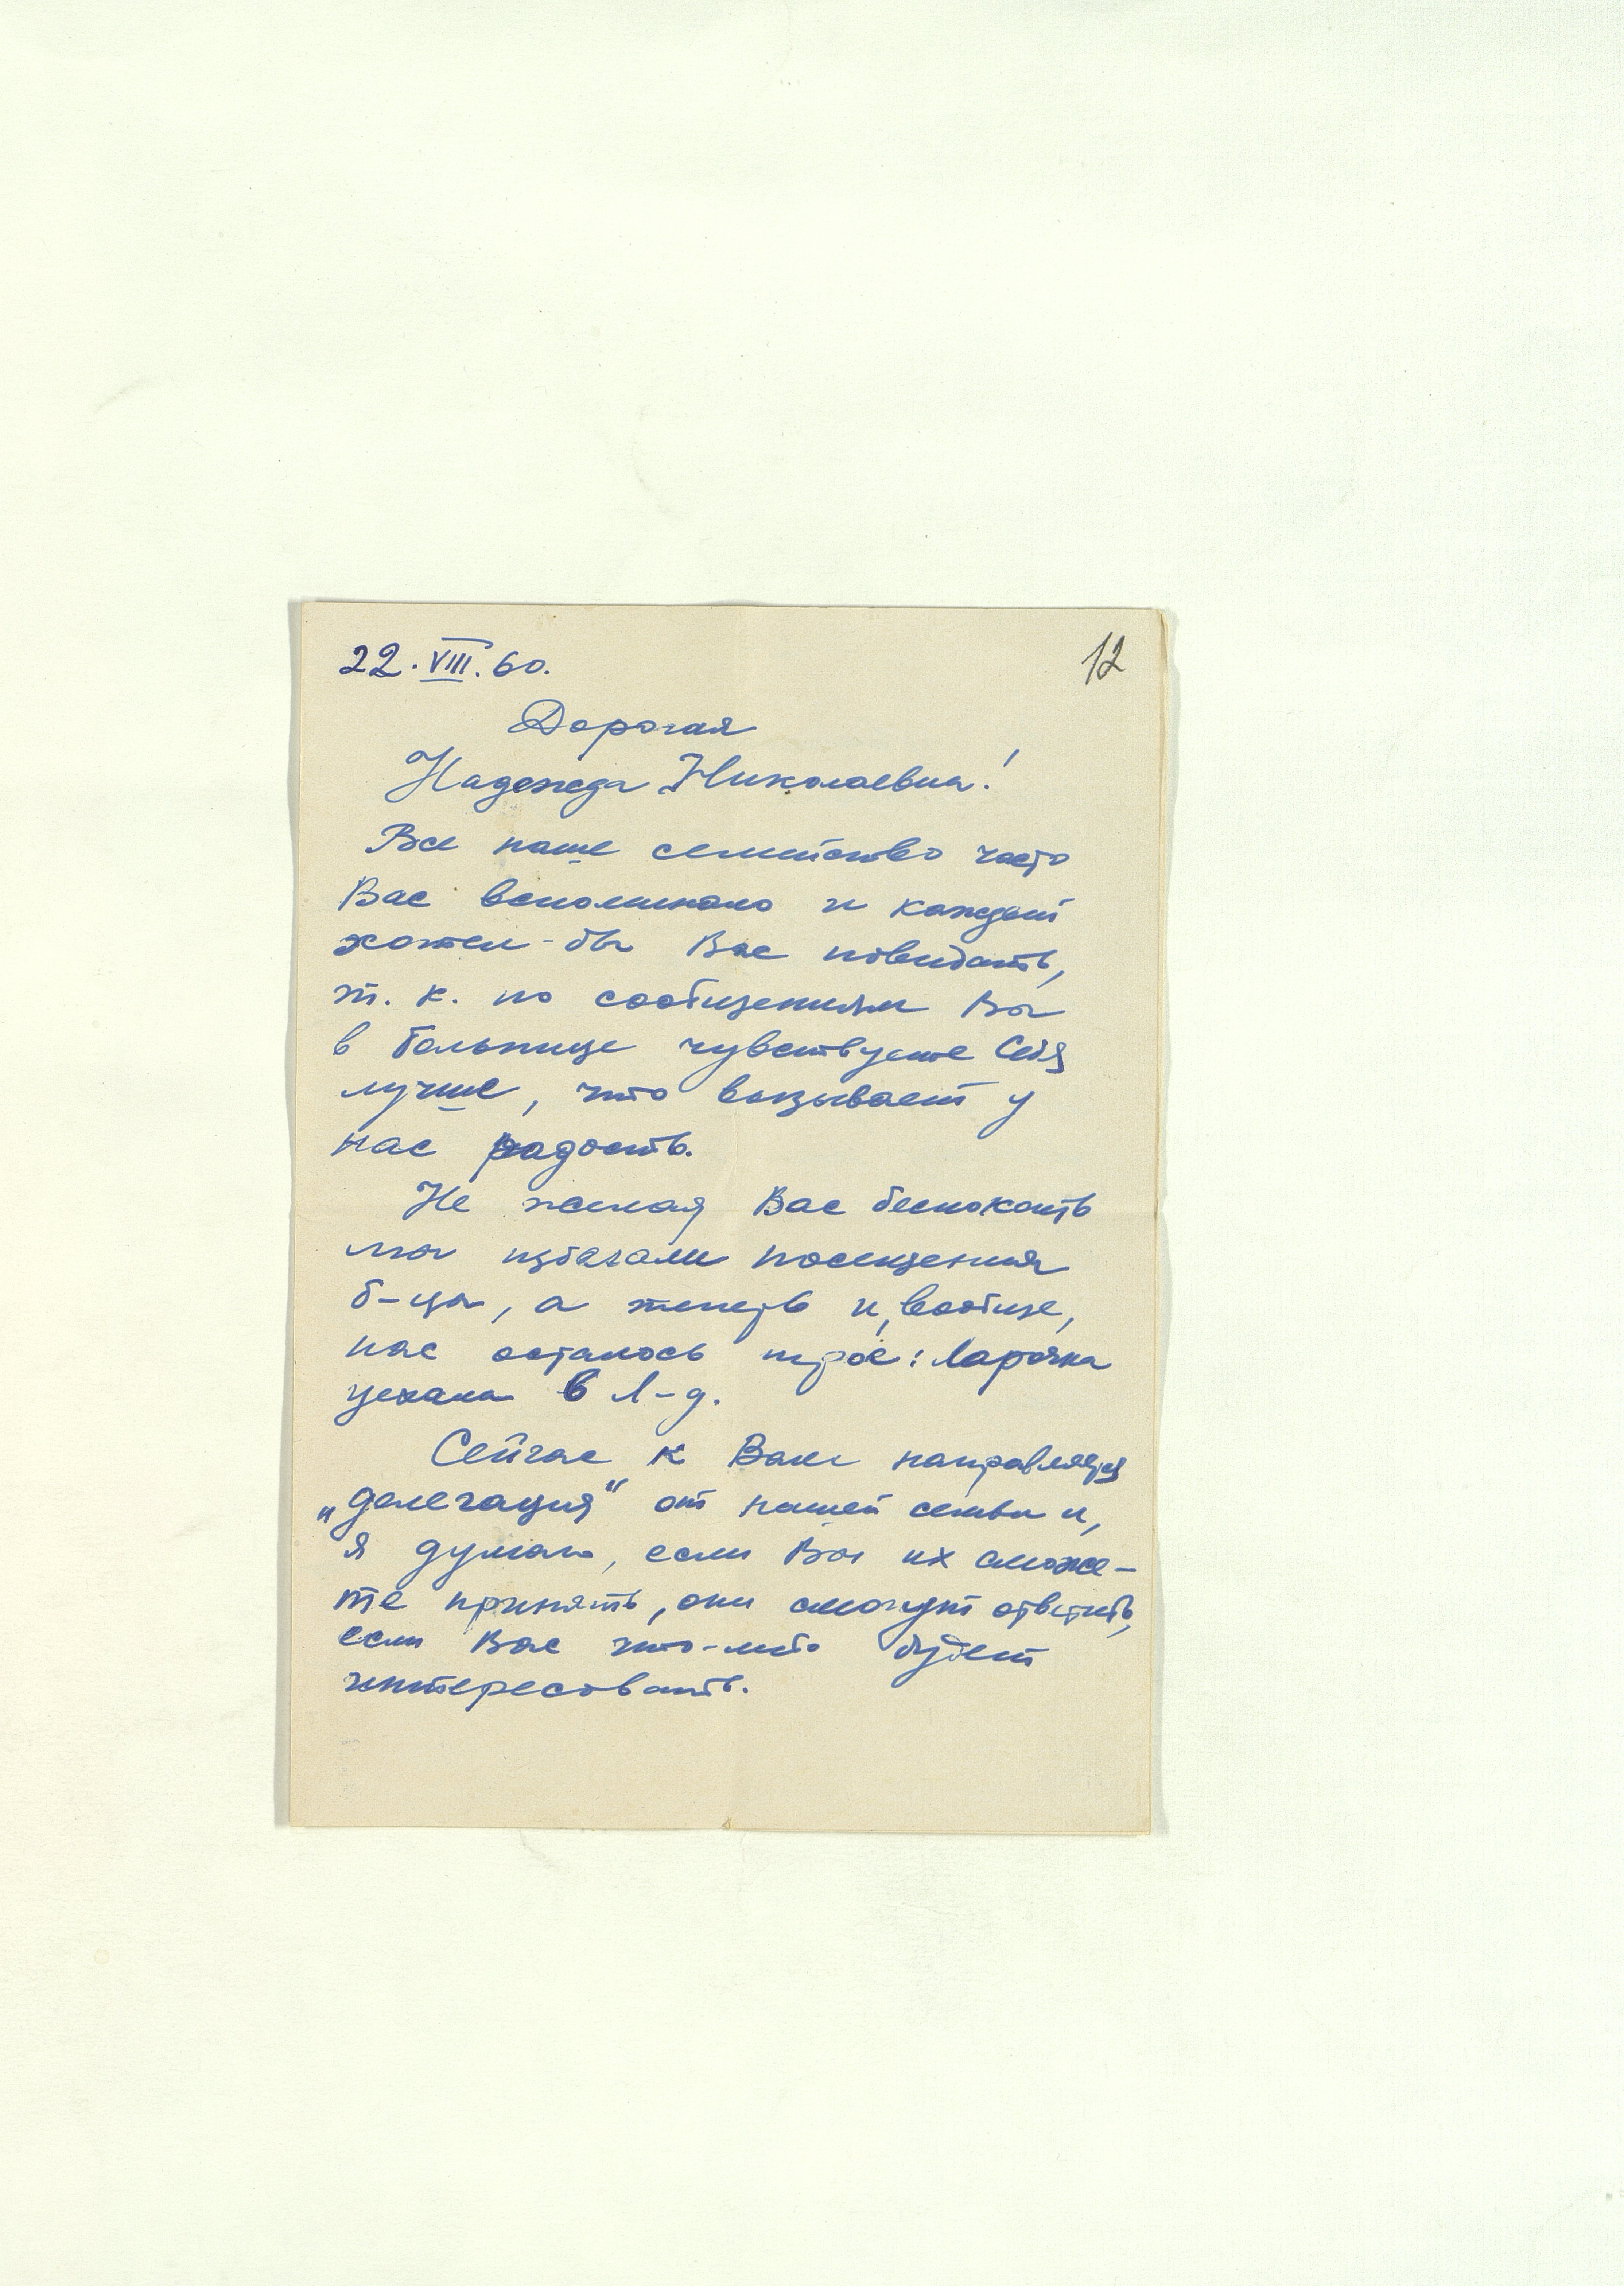 22.VIII.60.
12
Дорогая
Надежда Николаевна!
Все наше семейство часто
Вас вспоминало и каждый
хотел-бы Вас повидать,
т. к. по сообщениям Вы
в больнице чувствуете себя
лучше, что вызывает у
нас радость.
Не желая Вас беспокоить
мы избегали посещения
б-цы, а теперь и, вообще,
нас осталось трое: Ларочка
уехала в Л-д.
Сейчас к Вам направляется
„делегация“ от нашей семьи и,
я думаю, если Вы их сможе-
те принять, они смогут ответить,
если Вас что-либо будет
интересовать.